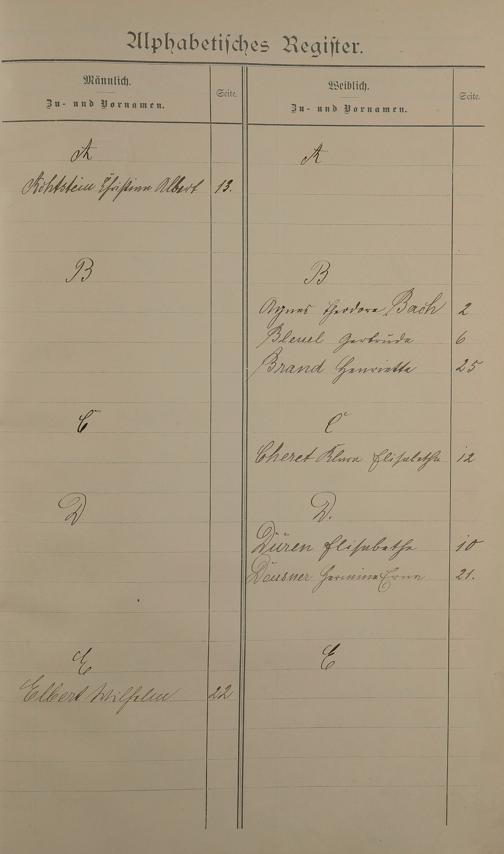 Alphabetisches Register.
Männlich.
Zu- und Vornamen.
Seite.
A
Christian Albert 13.
B
C
D
E
Elbert Wilhelm 22
Weiblich.
Zu- und Vornamen.
Seite.
A
B
Agnes Theodore Bach 2
Bleuel Gertrude 6
Brand Henriette 25
C
Cheret Klara Elisabetha 12
D.
Düren Elisabetha 10
Hermine Erna 21.
E